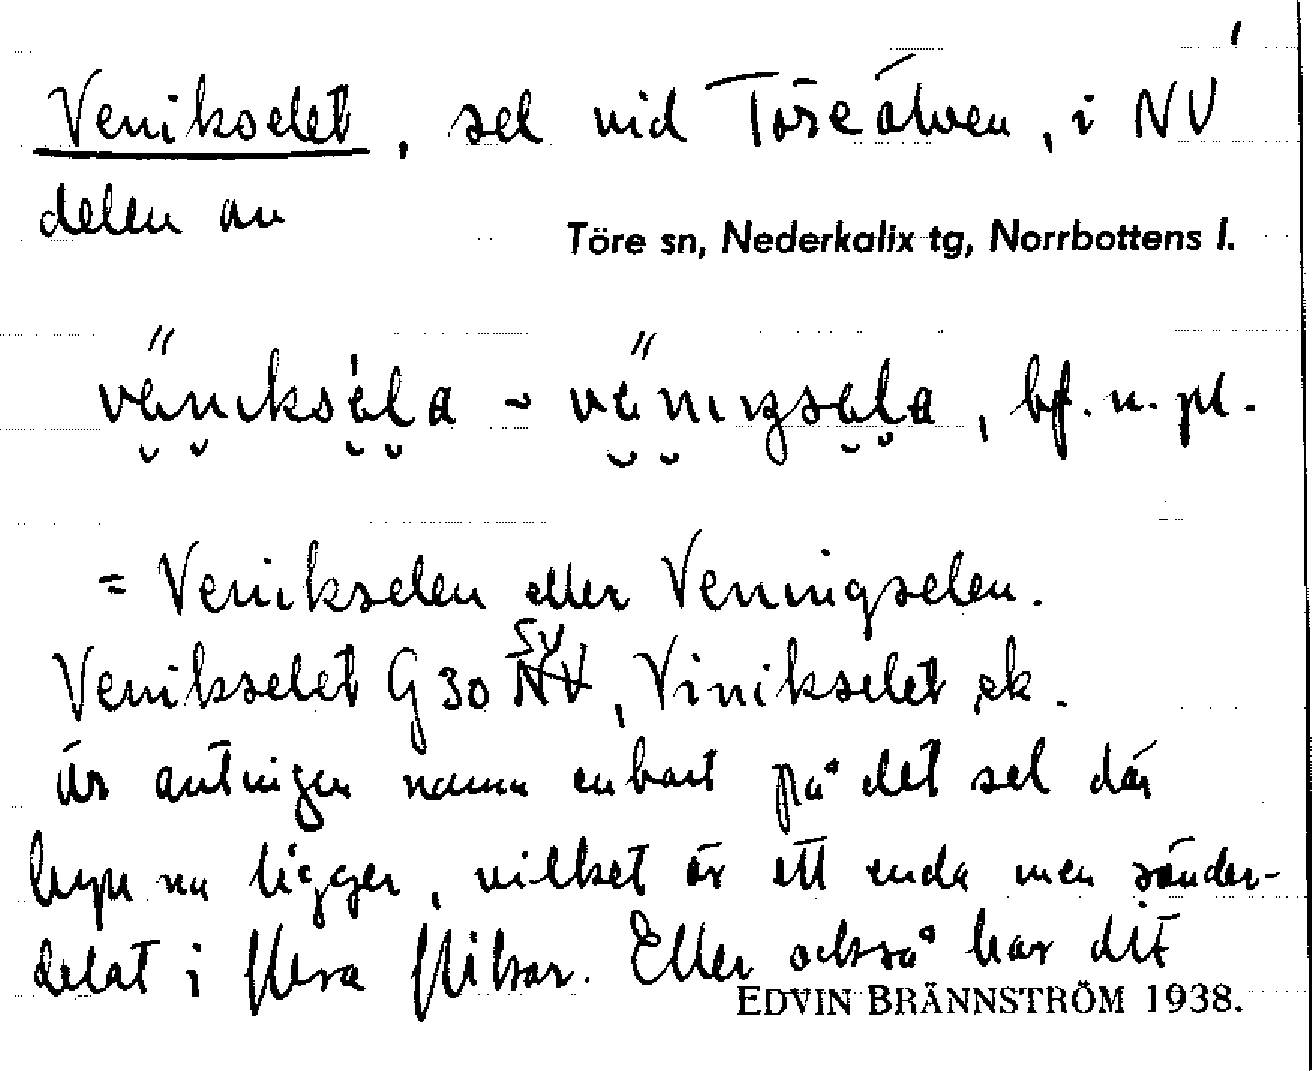 1
Venikselet, sel vid Töreälven, i NV
delen av
Töre sn, Nederkalix tg, Norrbottens l.
vänıksèla ~ vänıŋsela, bf. n. pl.
= Venikselen eller Venningselen.
Venikselet G 30 SV, Vinikselet ek.
är antingen namn enbart på det sel där
byn nu ligger, vilket är ett enda men sönder-
delat i flera flikar. Eller också har dit
EDVIN BRÄNNSTRÖM 1938.